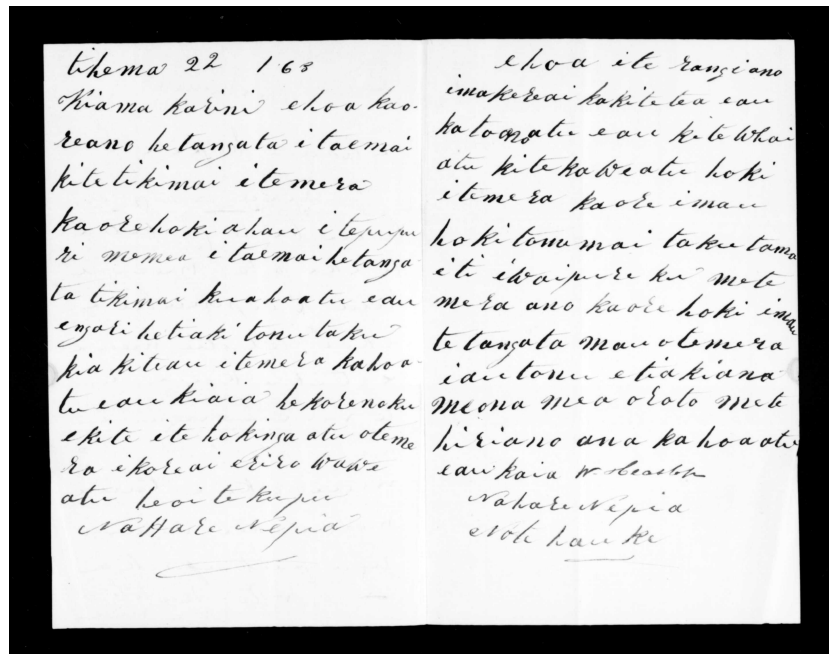 tihema 22 1 63
Kiama karini ehoa kao-
reano hetangata itaemai
kitetikimai itemera
kaorehoki ahau itepupu
ri memea itaemaihetanga-
ta tikimai kuahoatu eau
engari hetiaki tonu taku
kia kiteau itemera kahoa-
tu eau kiaia hekorenoku
ekite ite hokinga atu oteme
ra ikoreai eriro wawe
atu heoi tekupu
NaHare Nepia
ehoa ite rangiano
imakereai kakitetea eau
katonoatu eau kite Whai
atu kitekaweatu hoki
itemera kaore imau
hoki tonumai taku tama
iti iwaipureku mete
mera ano kaore hoki imau
te tangata mau otemera
iautonu etiakiana
meona mea oroto mete
hiriano ana kahoaatu
eau kaia W
Nahare Nepia
Note hauke